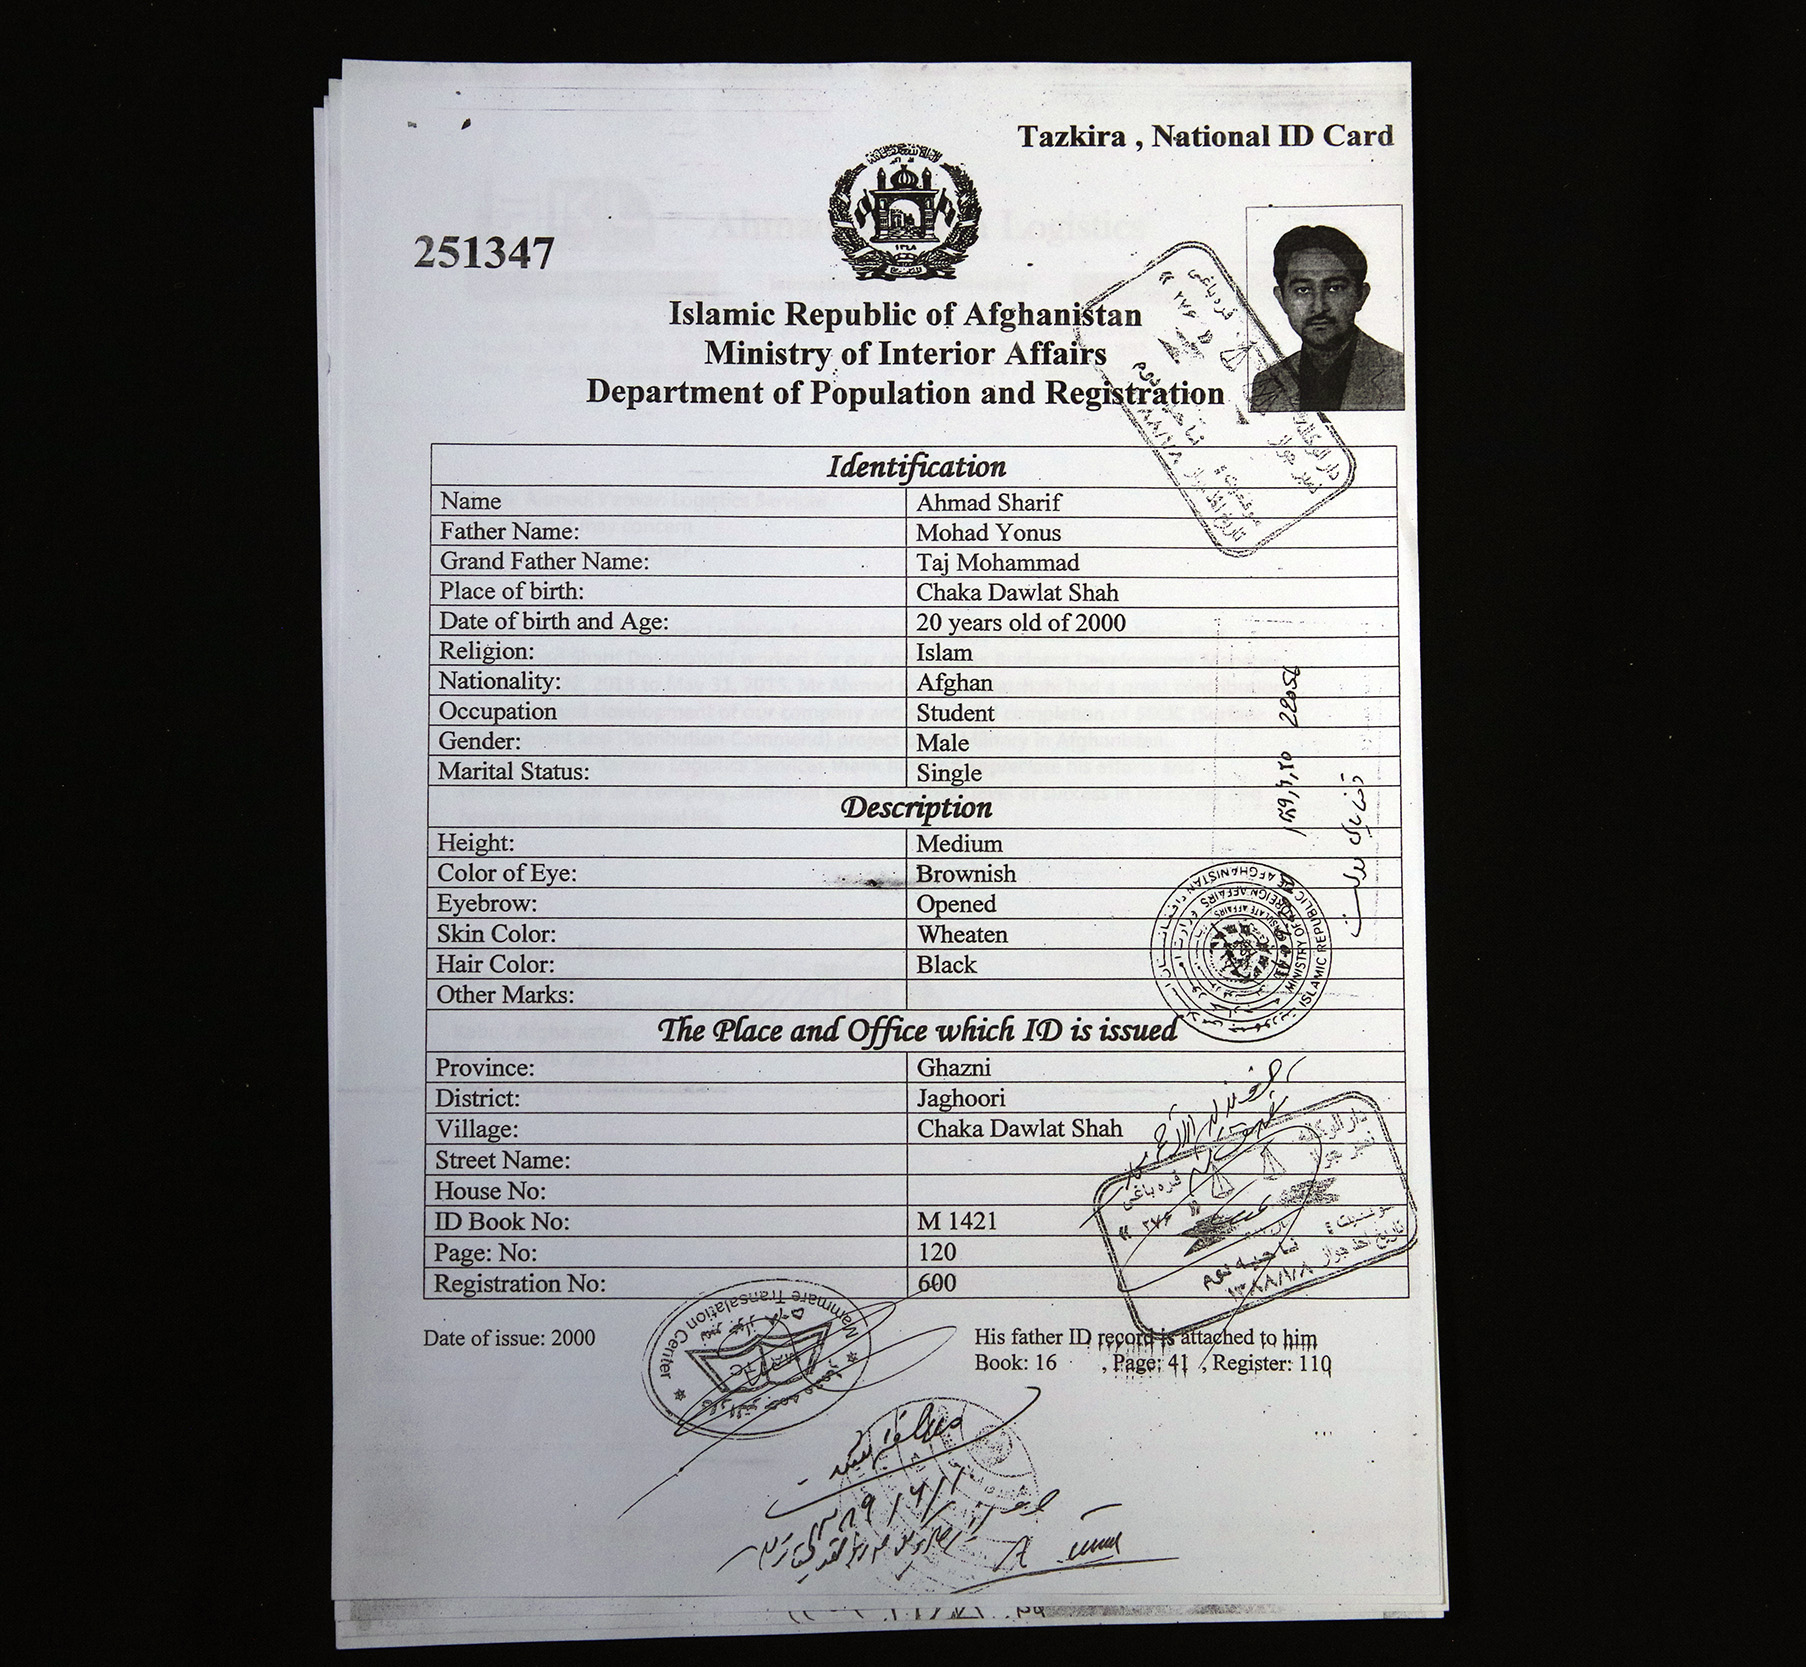 Tazkira , National ID Card
251347
Islamic Republic of Afghanistan
Ministry of Interior Affairs
Department of Population and Registration
Identification
Name Ahmad Sharif
Father Name: Mohad Yonus
Grand Father Name: Taj Mohammad
Place of birth: Chaka Dawlat Shah
Date of birth and Age: 20 years old of 2000
Religion: Islam
Nationality: Afghan
Occupation Student
Gender: Male
Marital Status: Single
Description
Height: Medium
Color of Eye: Brownish
Eyebrow: Opened
Skin Color: Wheaten
Hair Color: Black
Other Marks:
The Place and Office which ID is issued
Province: Ghazni
District: Jaghoori
Village: Chaka Dawlat Shah
Street Name:
House No:
ID Book No: M 1421
Page: No: 120
Registration No: 600
Date of issue: 2000
His father ID record is attached to him
Book: 16 , Page: 41 , Register: 110
ISLAMIC REPUBLIC OF AFGHANISTAN
MINISTRY OF FOREIGN AFFAIRS
دار الوکاله
قره باغی
نمبر جواز
« ۲۷۶ »
موقعیت :
ناحیه دوم
تاریخ اخذ جواز ۱۳۸۸/۱/۸
Mammare Transalation Center